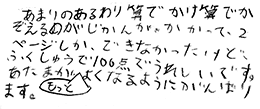 あまりのあるわり算でかけ算でか
ぞえるのがじかんがかかって、2
ページしか、できなかったけど、
ふくしゅうで100点でうれしいです。
あたまがよくなるようにがんばり
ます。もっと